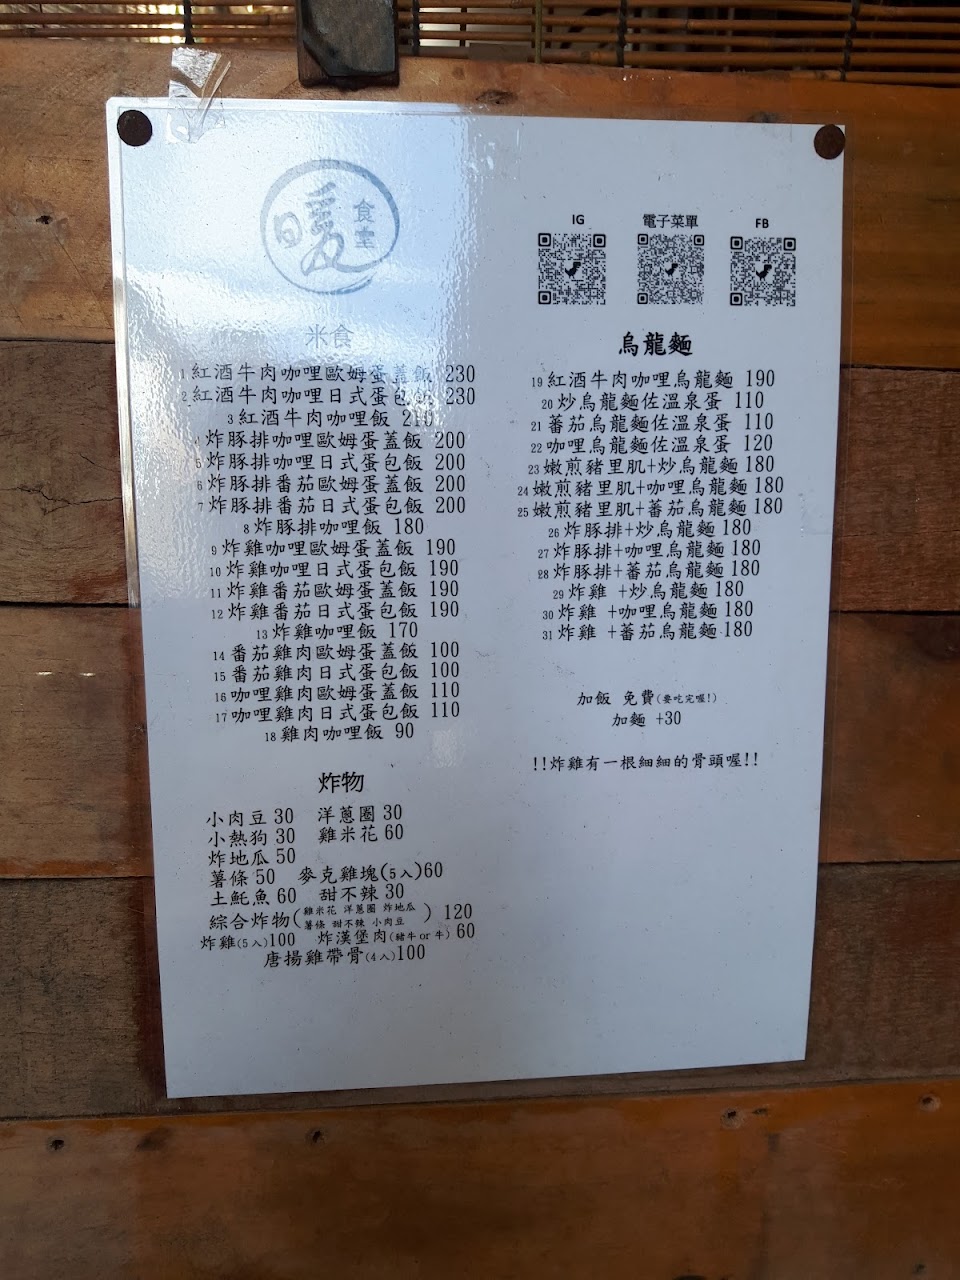 暖
食堂
IG
電子菜單
FB
米食
1 紅酒牛肉咖哩歐姆蛋蓋飯 230
2 紅酒牛肉咖哩日式蛋包飯 230
3 紅酒牛肉咖哩飯 210
4 炸豚排咖哩歐姆蛋蓋飯 200
5 炸豚排咖哩日式蛋包飯 200
6 炸豚排番茄歐姆蛋蓋飯 200
7 炸豚排番茄日式蛋包飯 200
8 炸豚排咖哩飯 180
9 炸雞咖哩歐姆蛋蓋飯 190
10 炸雞咖哩日式蛋包飯 190
11 炸雞番茄歐姆蛋蓋飯 190
12 炸雞番茄日式蛋包飯 190
13 炸雞咖哩飯 170
14 番茄雞肉歐姆蛋蓋飯 100
15 番茄雞肉日式蛋包飯 100
16 咖哩雞肉歐姆蛋蓋飯 110
17 咖哩雞肉日式蛋包飯 110
18 雞肉咖哩飯 90
炸物
小肉豆 30 洋蔥圈 30
小熱狗 30 雞米花 60
炸地瓜 50
薯條 50 麥克雞塊(5入)60
土魠魚 60 甜不辣 30
綜合炸物(雞米花 洋蔥圈 炸地瓜
薯條 甜不辣 小肉豆) 120
炸雞(5入)100 炸漢堡肉(豬牛or牛) 60
唐揚雞帶骨(4入)100
烏龍麵
19 紅酒牛肉咖哩烏龍麵 190
20 炒烏龍麵佐溫泉蛋 110
21 蕃茄烏龍麵佐溫泉蛋 110
22 咖哩烏龍麵佐溫泉蛋 120
23 嫩煎豬里肌+炒烏龍麵 180
24 嫩煎豬里肌+咖哩烏龍麵 180
25 嫩煎豬里肌+蕃茄烏龍麵 180
26 炸豚排+炒烏龍麵 180
27 炸豚排+咖哩烏龍麵 180
28 炸豚排+蕃茄烏龍麵 180
29 炸雞 +炒烏龍麵 180
30 炸雞 +咖哩烏龍麵 180
31 炸雞 +蕃茄烏龍麵 180
加飯 免費(要吃完喔!)
加麵 +30
!!炸雞有一根細細的骨頭喔!!